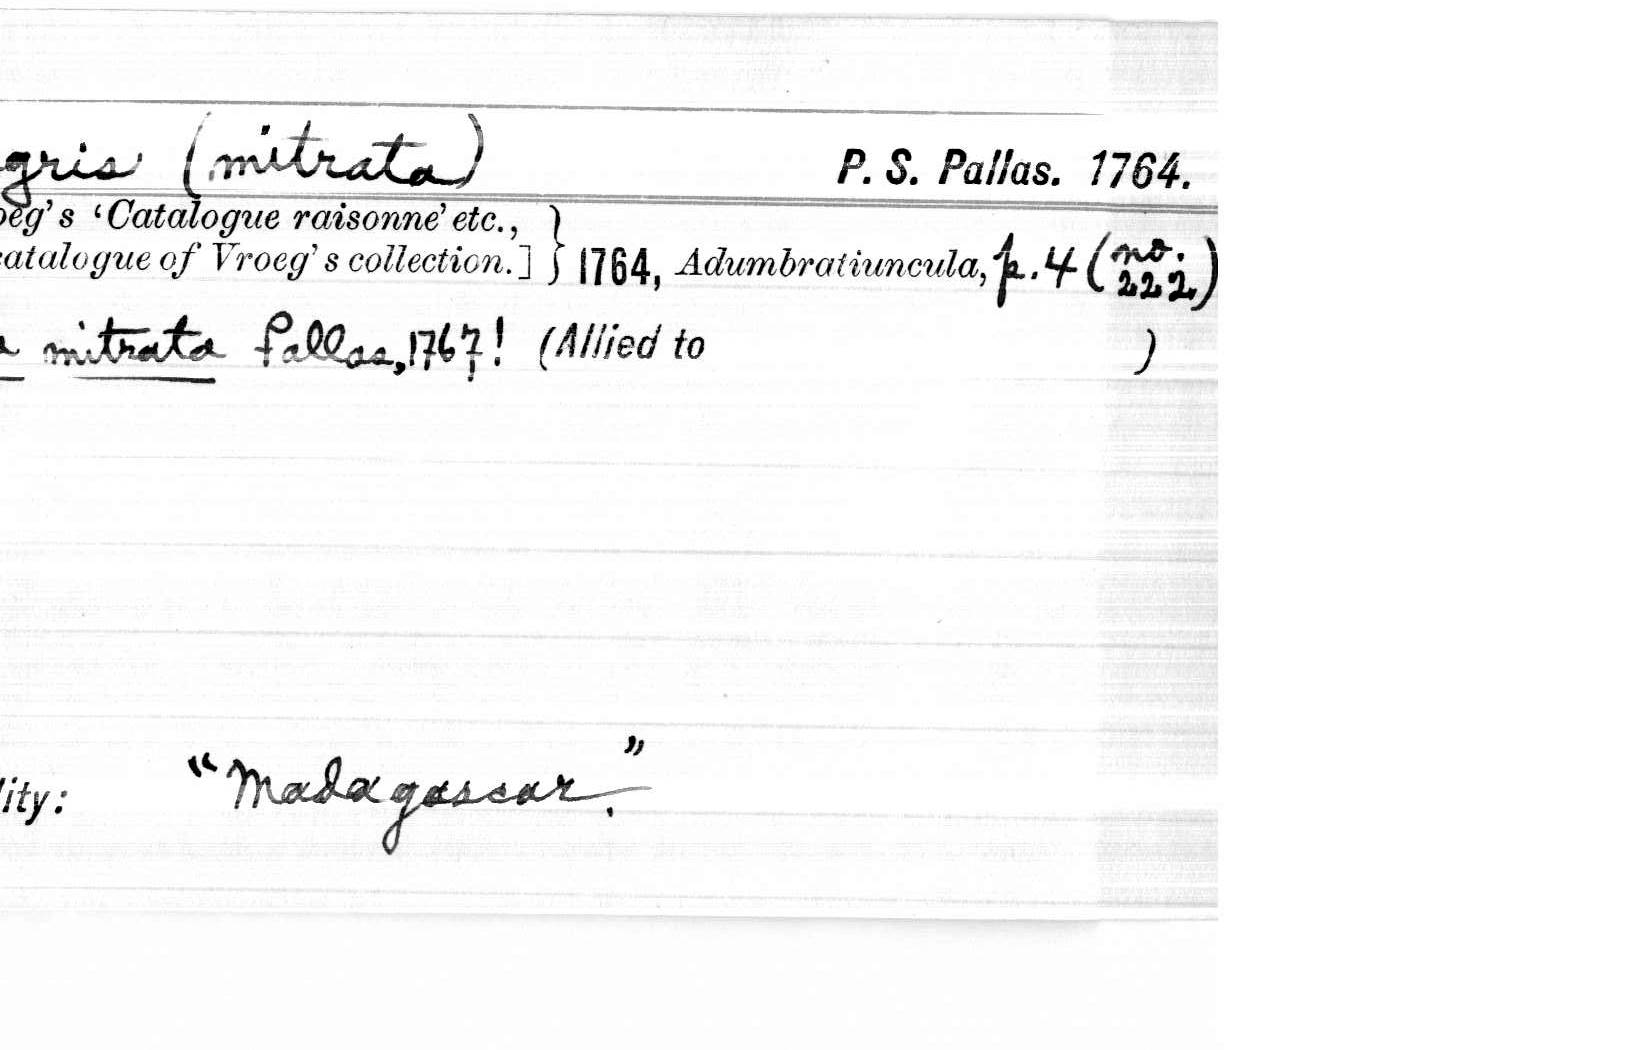 gris (mitrata) P. S. Pallas. 1764.
oeg's 'Catalogue raisonne' etc.,
catalogue of Vroeg's collection.] } 1764, Adumbratiuncula, p. 4 (no. 222)
a mitrata Pallas, 1767! (Allied to )
lity: "Madagascar."